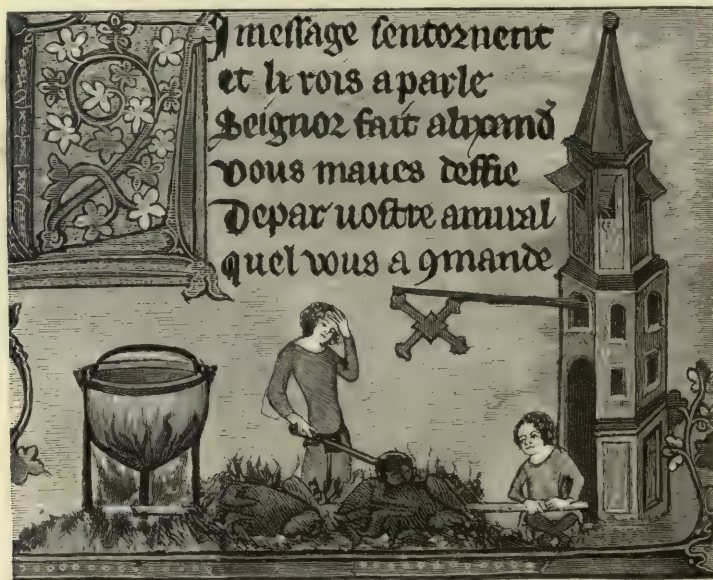 I message sentornent
et li rois a parle
Seignor fait alixand̄
vous maues deffie
Depar uostre amiral
quel vous a ꝯmande